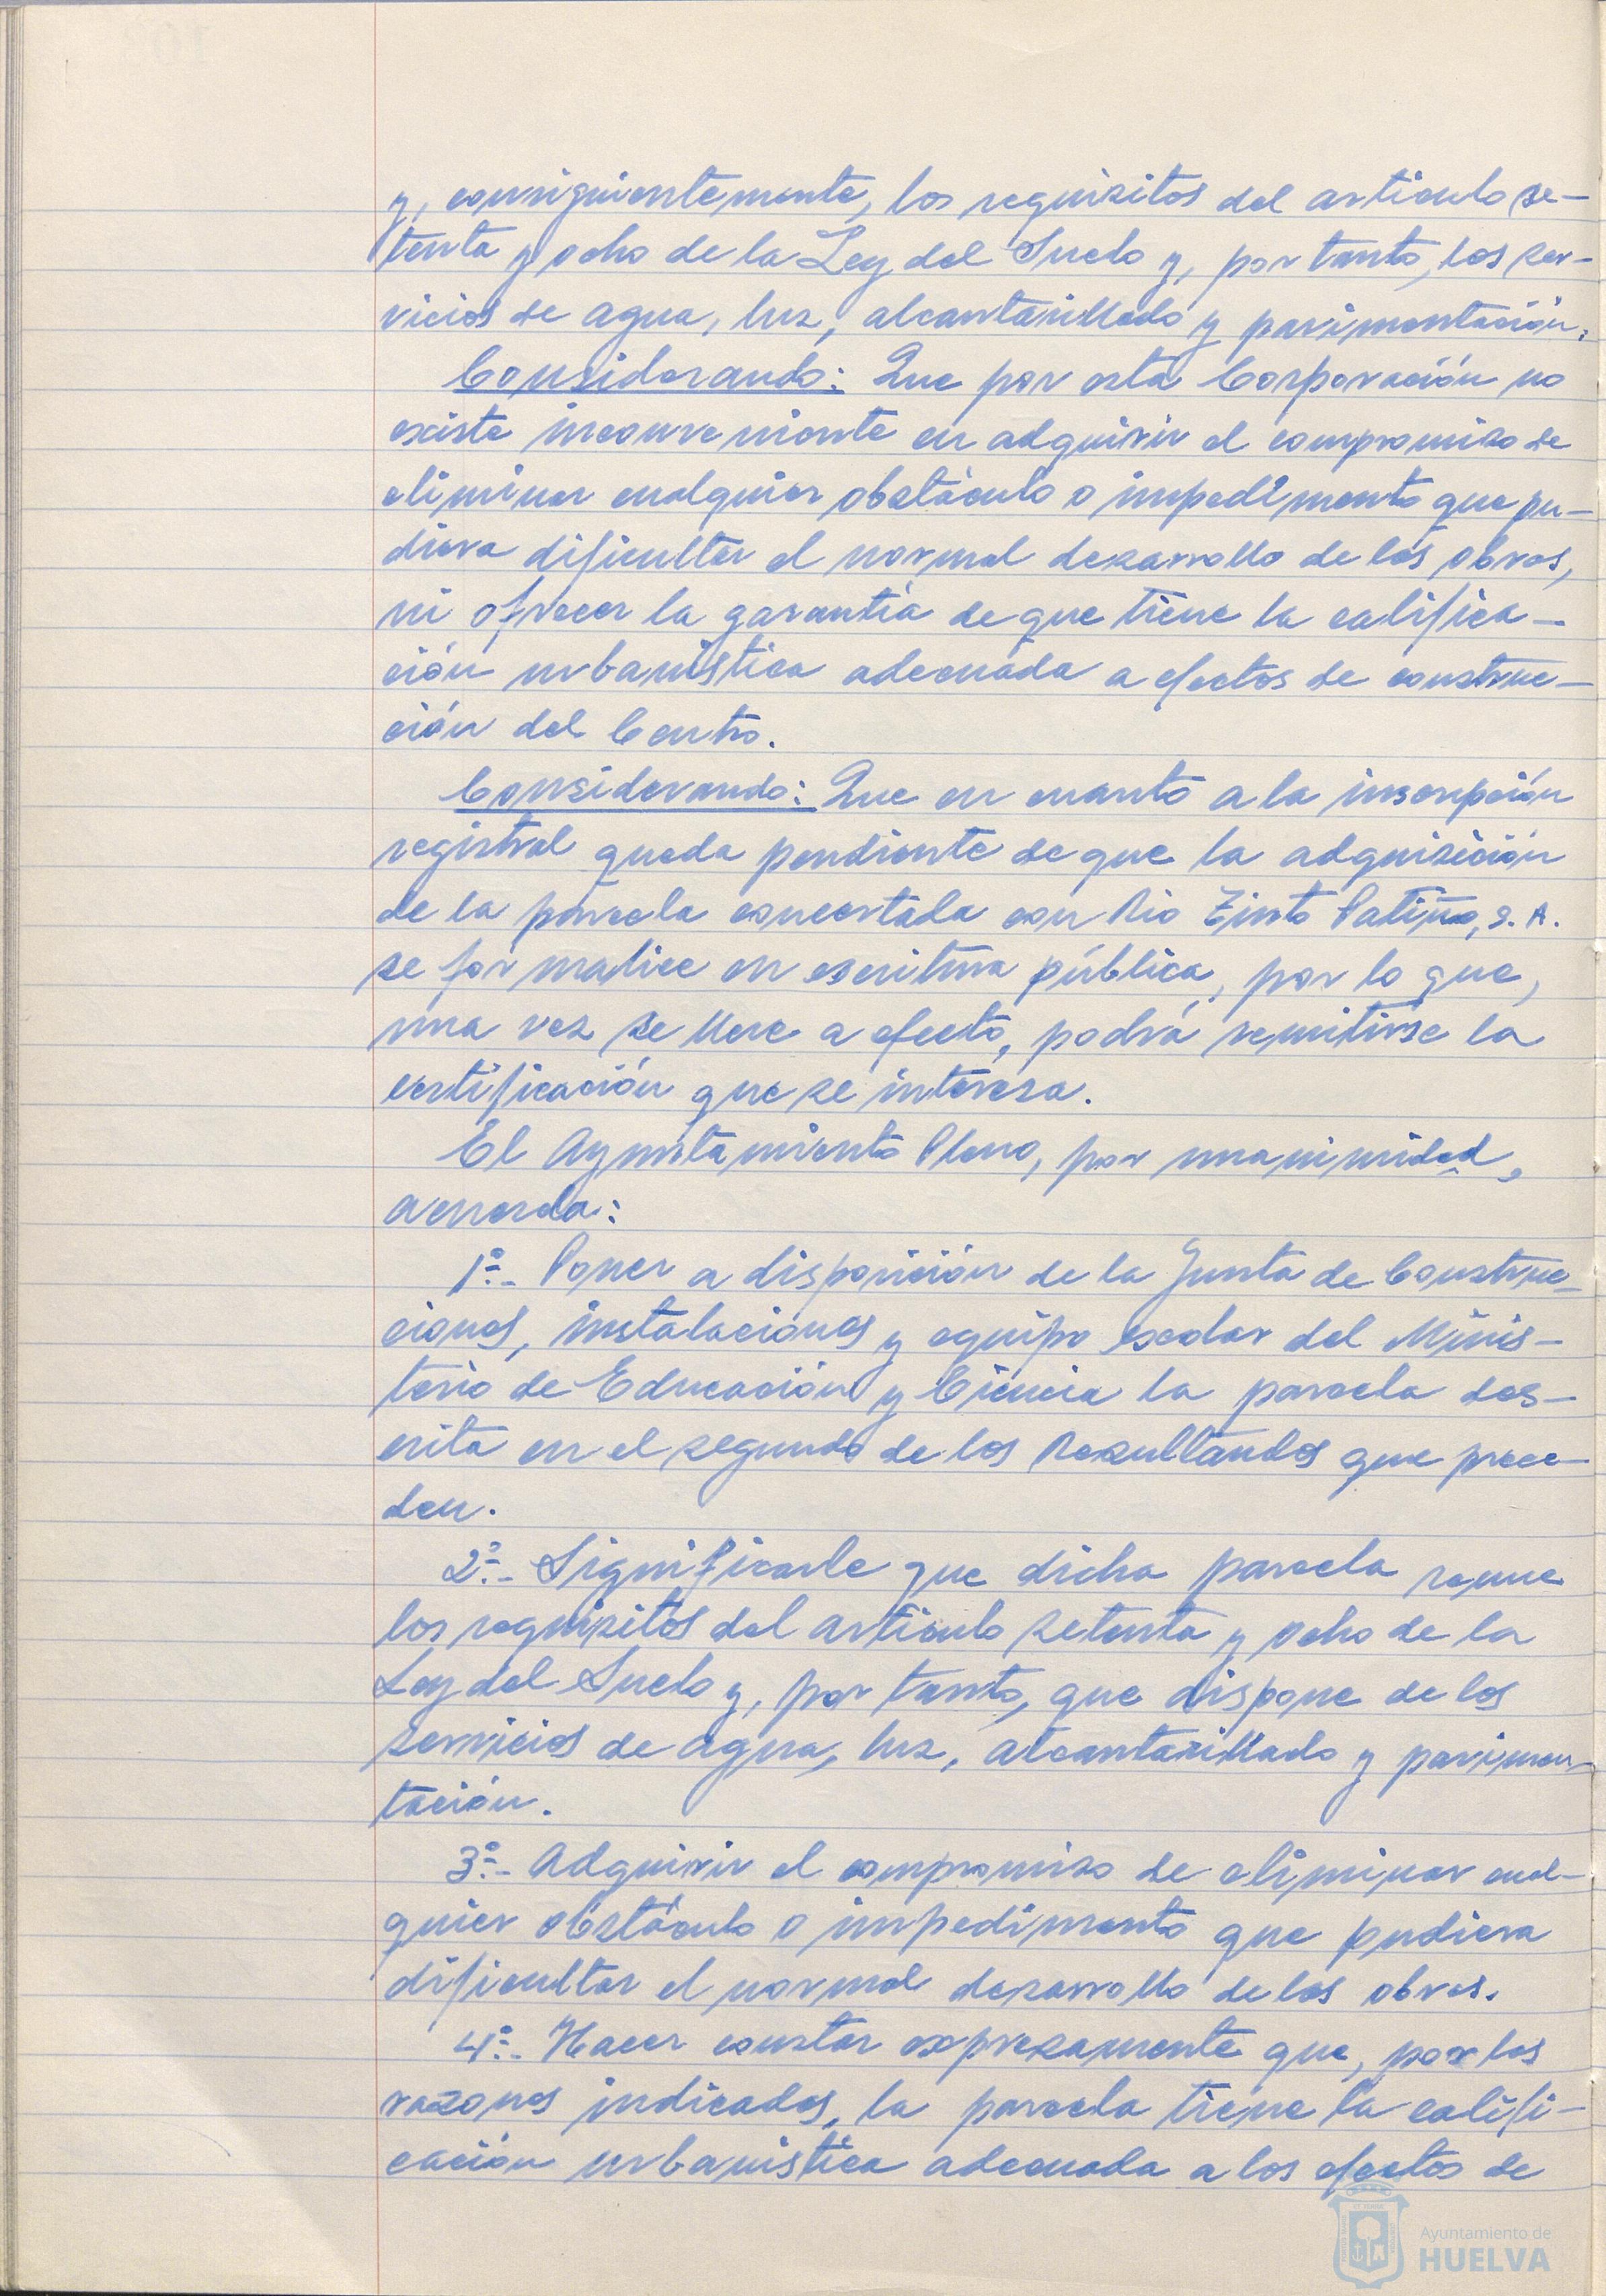 y, consiguientemente, los requisitos del articulo se-
tenta y ocho de la Ley del Suelo y, por tanto, los ser-
vicios de agua, luz, alcantarillado y pavimentación.
Considerando: Que por esta Corporación no
existe inconveniente en adquirir el compromiso de
eliminar cualquier obstáculo o impedimento que pu-
diera dificultar el normal desarrollo de las obras,
ni ofrecer la garantía de que tiene la califica-
ción urbanística adecuada a efectos de construc-
ción del Centro.
Considerando: Que en cuanto a la inscripción
registral queda pendiente de que la adquisición
de la parcela concertada con Rio Tinto Patiño, S. A.
se formalice en escritura pública, por lo que,
una vez se lleve a efecto, podrá remitirse la
certificación que se interesa.
El Ayuntamiento Pleno, por unanimidad,
acuerda:
1º.- Poner a disposición de la Junta de Construc-
ciones, instalaciones y equipo escolar del Minis-
terio de Educación y Ciencia la parcela des-
crita en el segundo de los Resultandos que prece-
den.
2º.- Significarle que dicha parcela reune
los requisitos del articulo setenta y ocho de la
Ley del Suelo y, por tanto, que dispone de los
servicios de agua, luz, alcantarillado y pavimen-
tación.
3º.- Adquirir el compromiso de eliminar cual-
quier obstáculo o impedimento que pudiera
dificultar el normal desarrollo de las obras.
4º.- Hacer constar expresamente que, por las
razones indicadas, la parcela tiene la califi-
cación urbanística adecuada a los efectos de
Ayuntamiento de
HUELVA